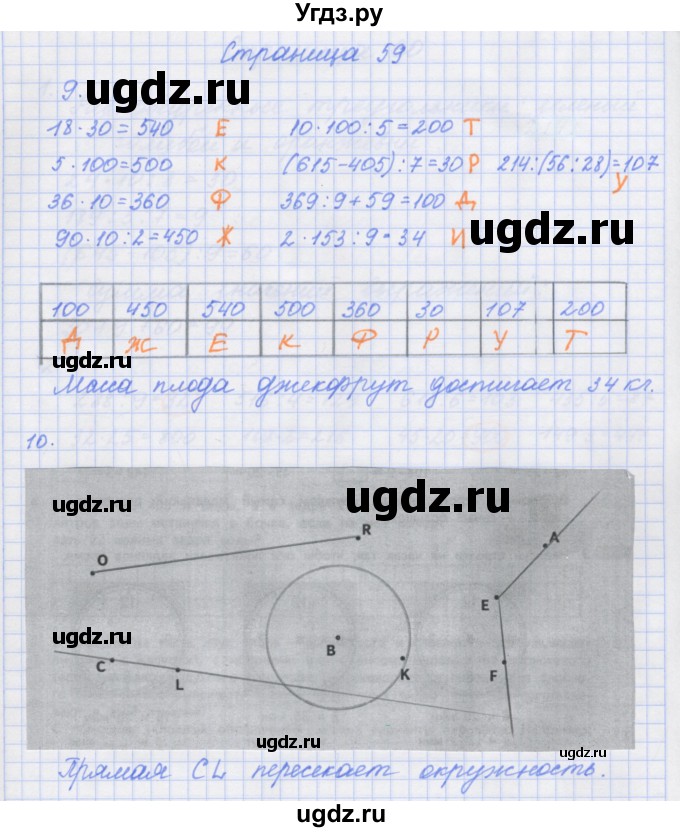 Угдз.ру
Страница 59
9.
ugdz.ru
18·30=540 Е 10·100:5=200 Т
5·100=500 К (615-405):7=30 Р 214:(56:28)=107 У
36·10=360 Ф 369:9+59=100 Д
90·10:2=450 Ж 2·153:9=34 И
ugdz.ru
ugdz.ru
100 450 540 500 360 30 107 200
Д Ж Е К Ф Р У Т
Масса плода джекфрут достигает 34 кг.
10.
ugdz.ru
ugdz.ru
R
A
O
E
ugdz.ru
B
C
K
F
L
ugdz.ru
ugdz.ru
Прямая CL пересекает окружность.
ugdz.ru